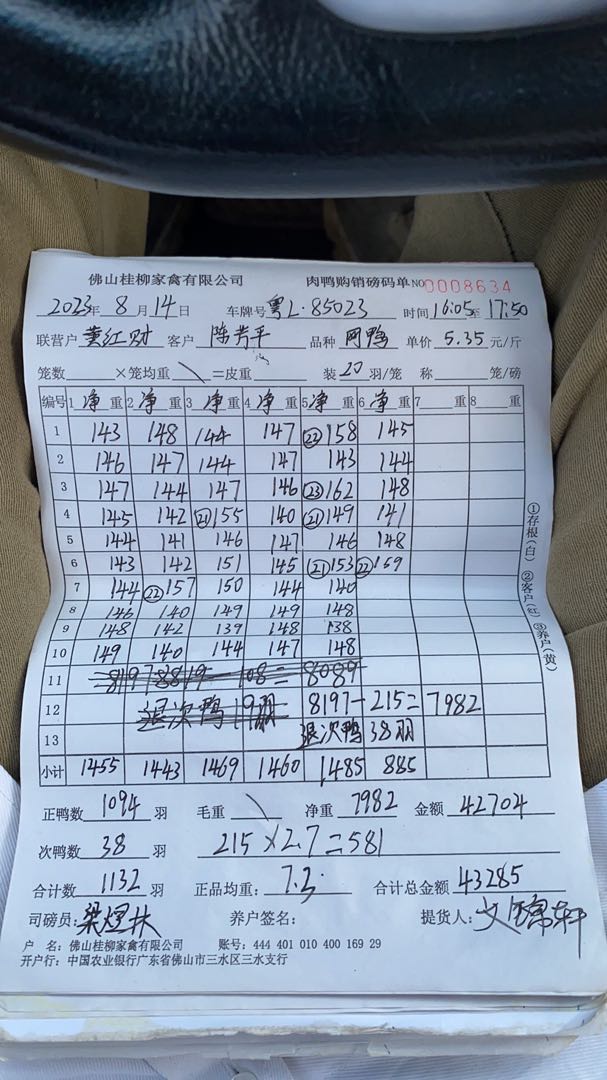 佛山桂柳家禽有限公司 肉鸭购销磅码单 NO 0008634
2023年 8月 14日 车牌号 粤L·85023 时间 16:05 至 17:50
联营户 黄红财 客户 陈芳平 品种 网鸭 单价 5.35 元/斤
笼数 ×笼均重 \ =皮重 装 20 羽/笼 称 笼/磅
编号 1 净 重 2 净 重 3 净 重 4 净 重 5 净 重 6 净 重 7 重 8 重
1 143 148 144 147 ㉒158 145
2 146 147 144 147 143 144
3 147 144 147 146 ㉓162 148
4 145 142 ㉑155 140 ㉑149 141
5 144 141 146 147 146 148
6 143 142 151 145 ㉑153 ㉒159
7 144 ㉒157 150 144 140
8 146 140 149 149 148
9 148 142 139 148 138
10 149 140 144 147 148
11 108= 8089
12 退次鸭19羽 8197-215= 7982
13 退次鸭 38羽
小计 1455 1443 1469 1460 1485 885
正鸭数 1094 羽 毛重 \ 净重 7982 金额 42704
次鸭数 38 羽 215×2.7=581
合计数 1132 羽 正品均重: 7.3 合计总金额 43285
司磅员: 梁煜林 养户签名: 提货人:
户 名: 佛山桂柳家禽有限公司 账号: 444 401 010 400 169 29
开户行: 中国农业银行广东省佛山市三水区三水支行
①存根(白) ②客户(红) ③养户(黄)